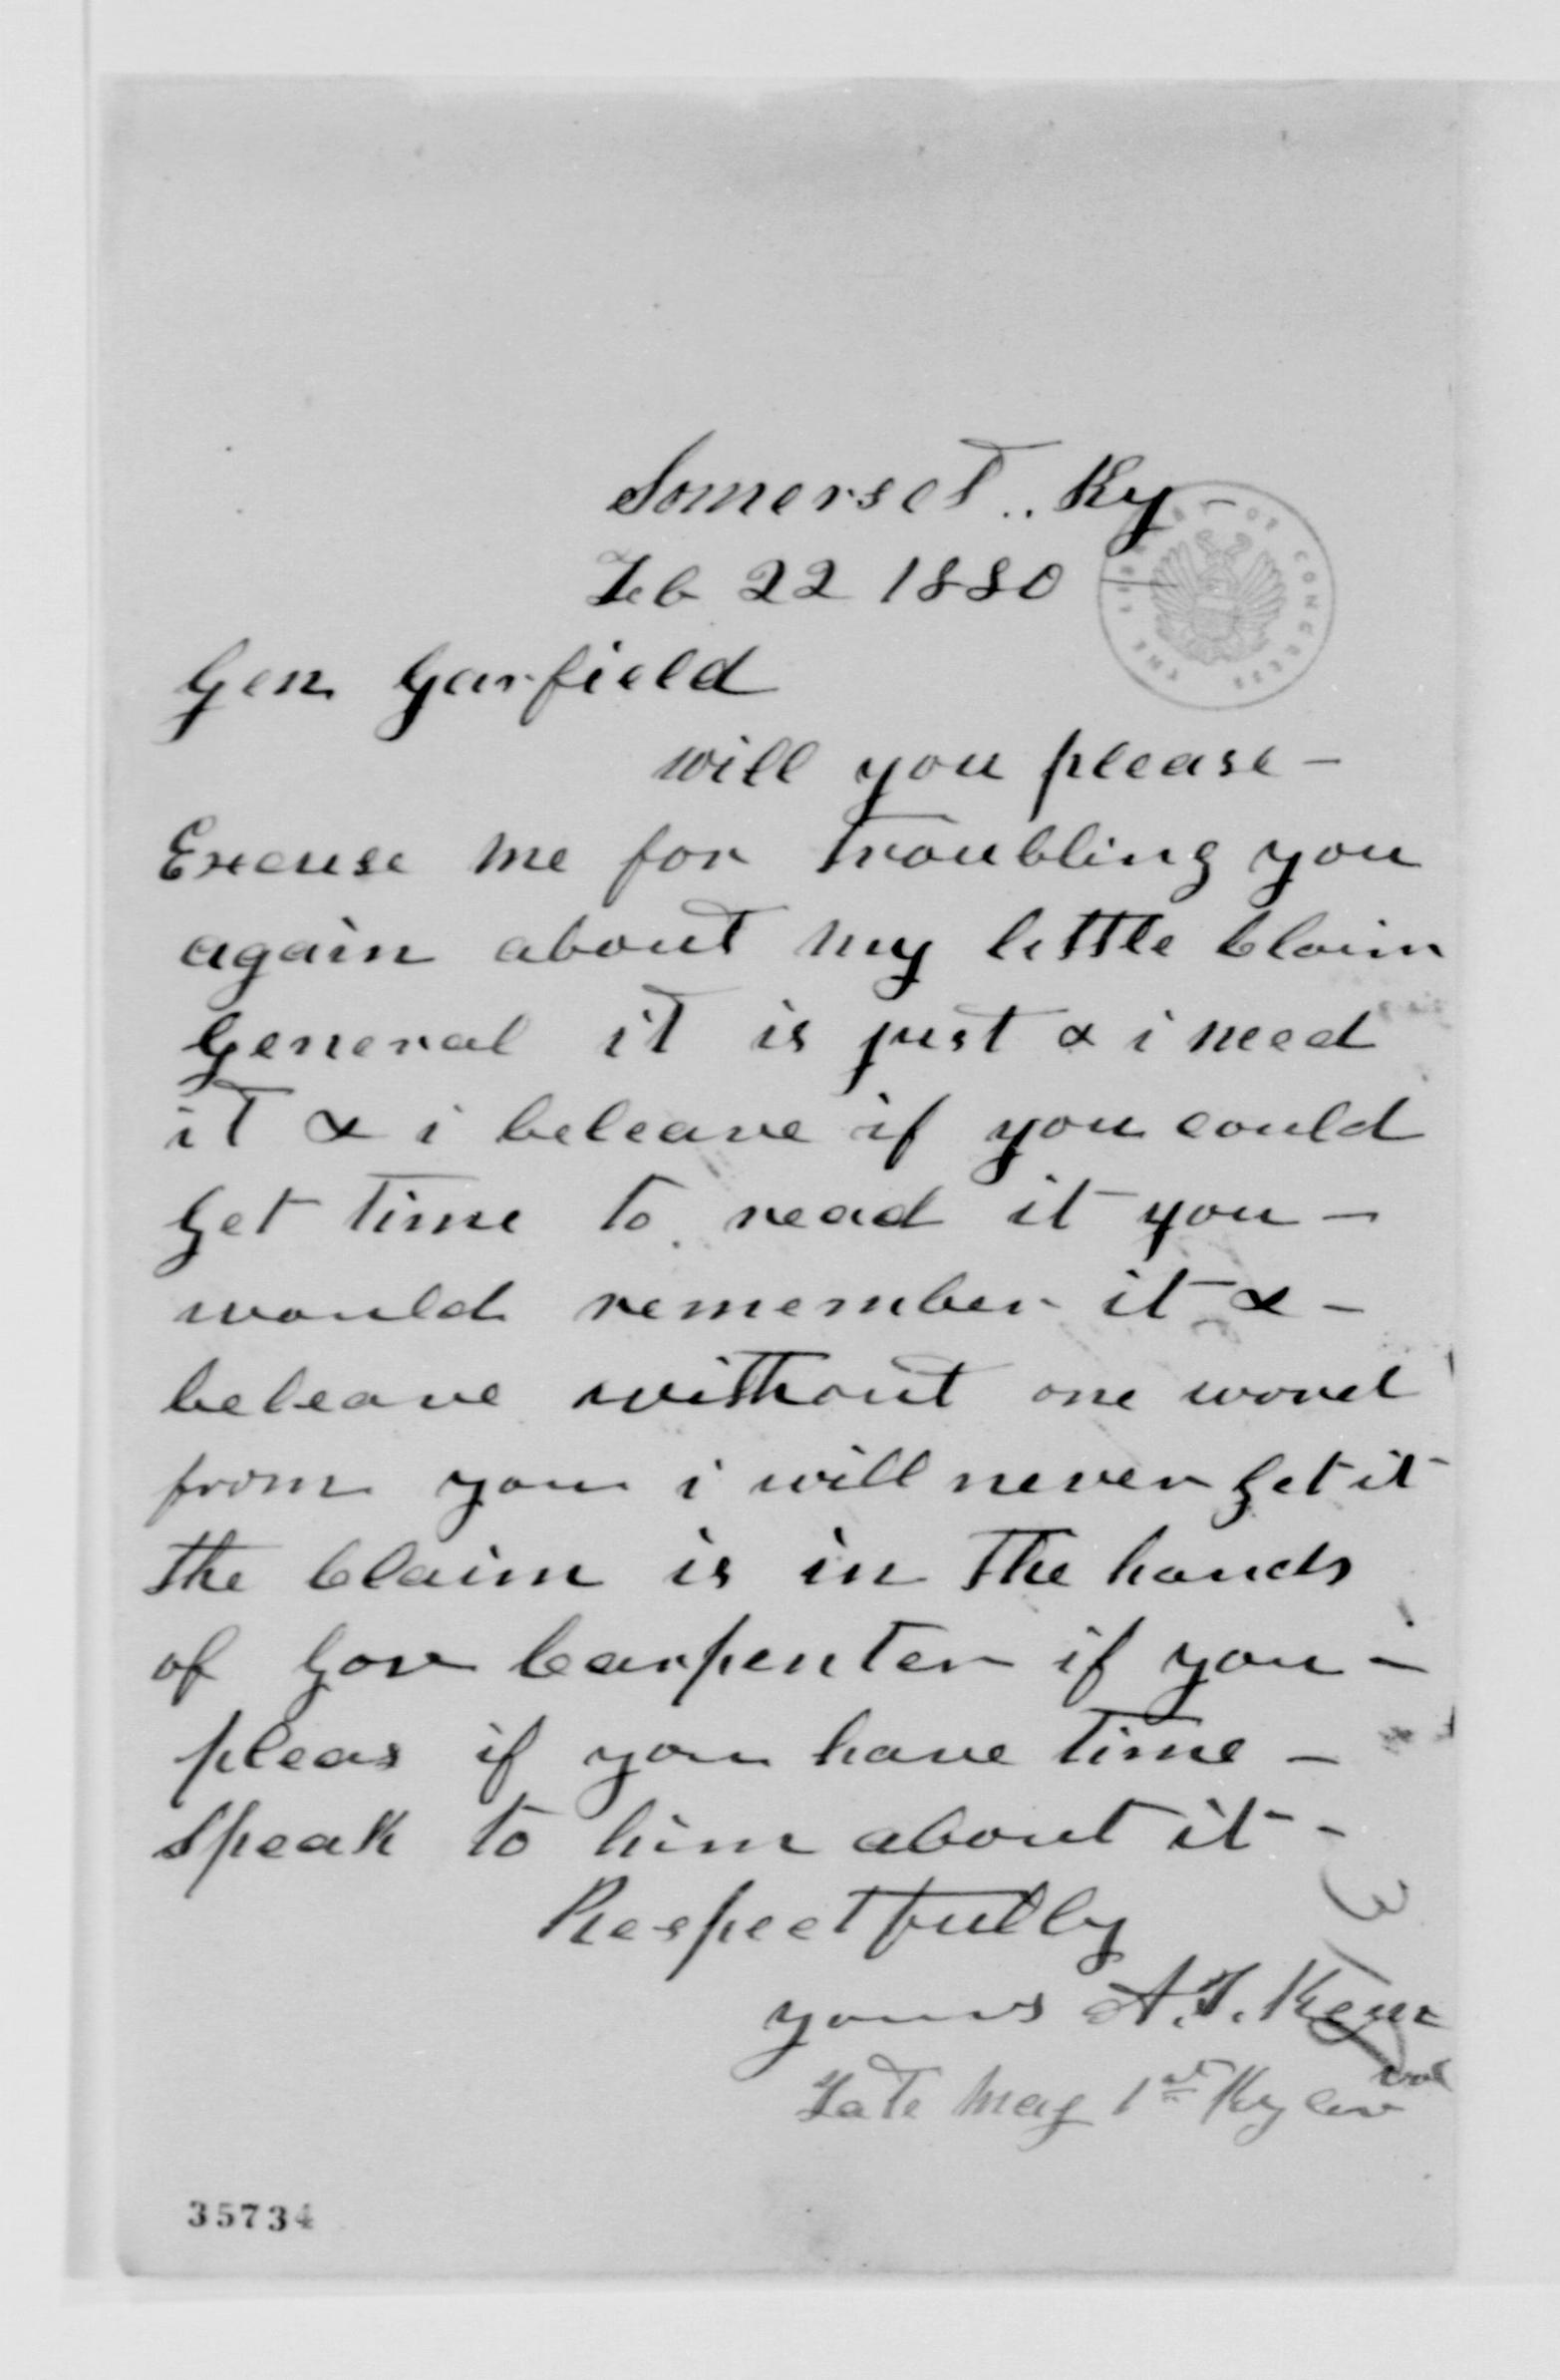 Somerset .. Ky -
Feb 22 1880 -
THE LIBRARY OF CONGRESS
Gen Garfield
will you please -
Excuse me for troubling you
again about my little Claim
General it is just & i need
it & i beleave if you could
Get time to read it you -
would remember it & -
beleave without one word
from you i will never Get it
the Claim is in The hands
of Gov Carpenter if you -
pleas if you have time -
Speak to him about it -
Respectfully
yours A.T. Keen
Late Maj 1st Ky Cav
35734